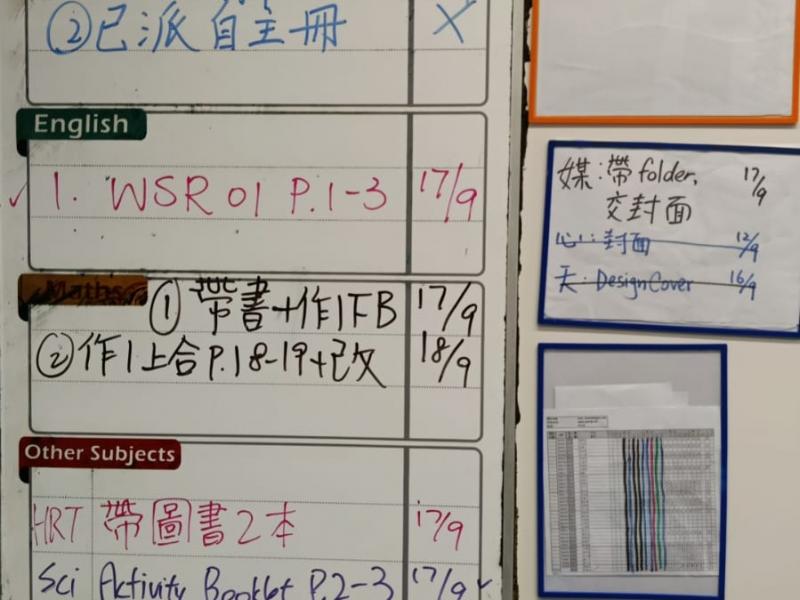 ②已派自主冊 X
English
1. WSR 01 P.1-3 17/9
Maths
① 帶書+作1下B 17/9
② 作1上合P.18-19+改 18/9
Other Subjects
HRT 帶圖書2本 17/9
Sci Activity Booklet P.2-3 17/9
媒:帶 folder, 17/9
交封面
心:封面 12/9
天: Design Cover 16/9